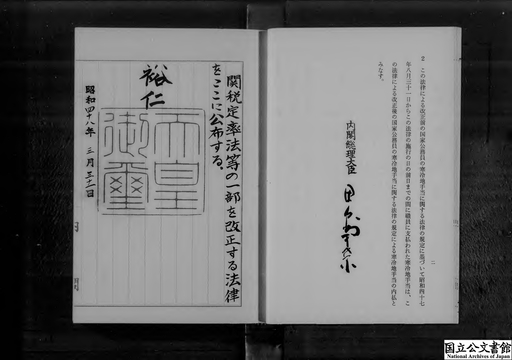 2 この法律による改正前の国家公務員の寒冷地手当に関する法律の規定に基づいて昭和四十七
年八月三十一日からこの法律の施行の日の前日までの間に職員に支払われた寒冷地手当は、こ
の法律による改正後の国家公務員の寒冷地手当に関する法律の規定による寒冷地手当の内払と
みなす。
二
内閣総理大臣
関税定率法等の一部を改正する法律
をここに公布する。
裕仁
天皇
御璽
昭和四十八年 三月三十一日
国立公文書館
National Archives of Japan